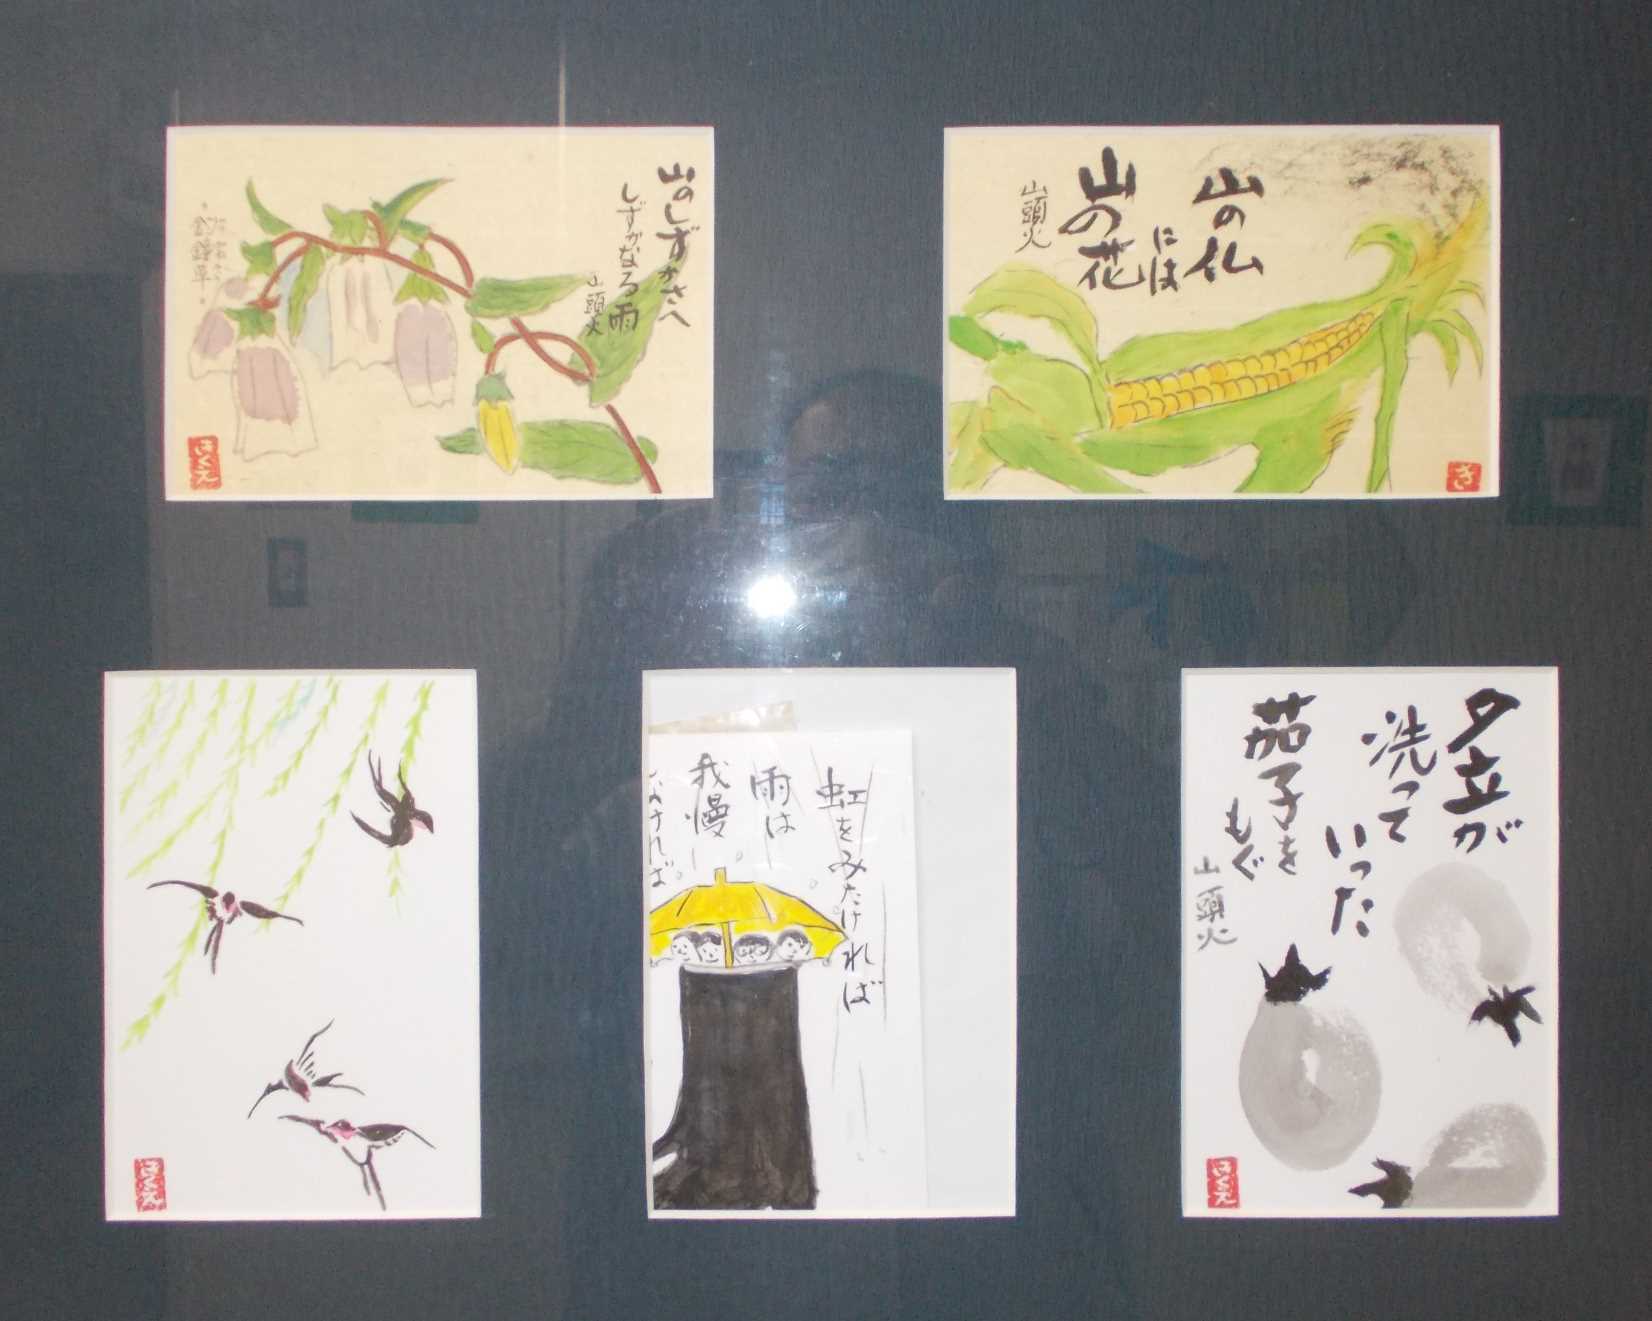 山のしずかさへ
しずかなる雨
山頭火
釣鐘草
はくえ
山の仏
には
山の花
山頭火
き
はくえ
虹をみたければ
雨は
我慢
しなければ。
夕立が
洗って
いった
茄子を
もぐ
山頭火
はくえ